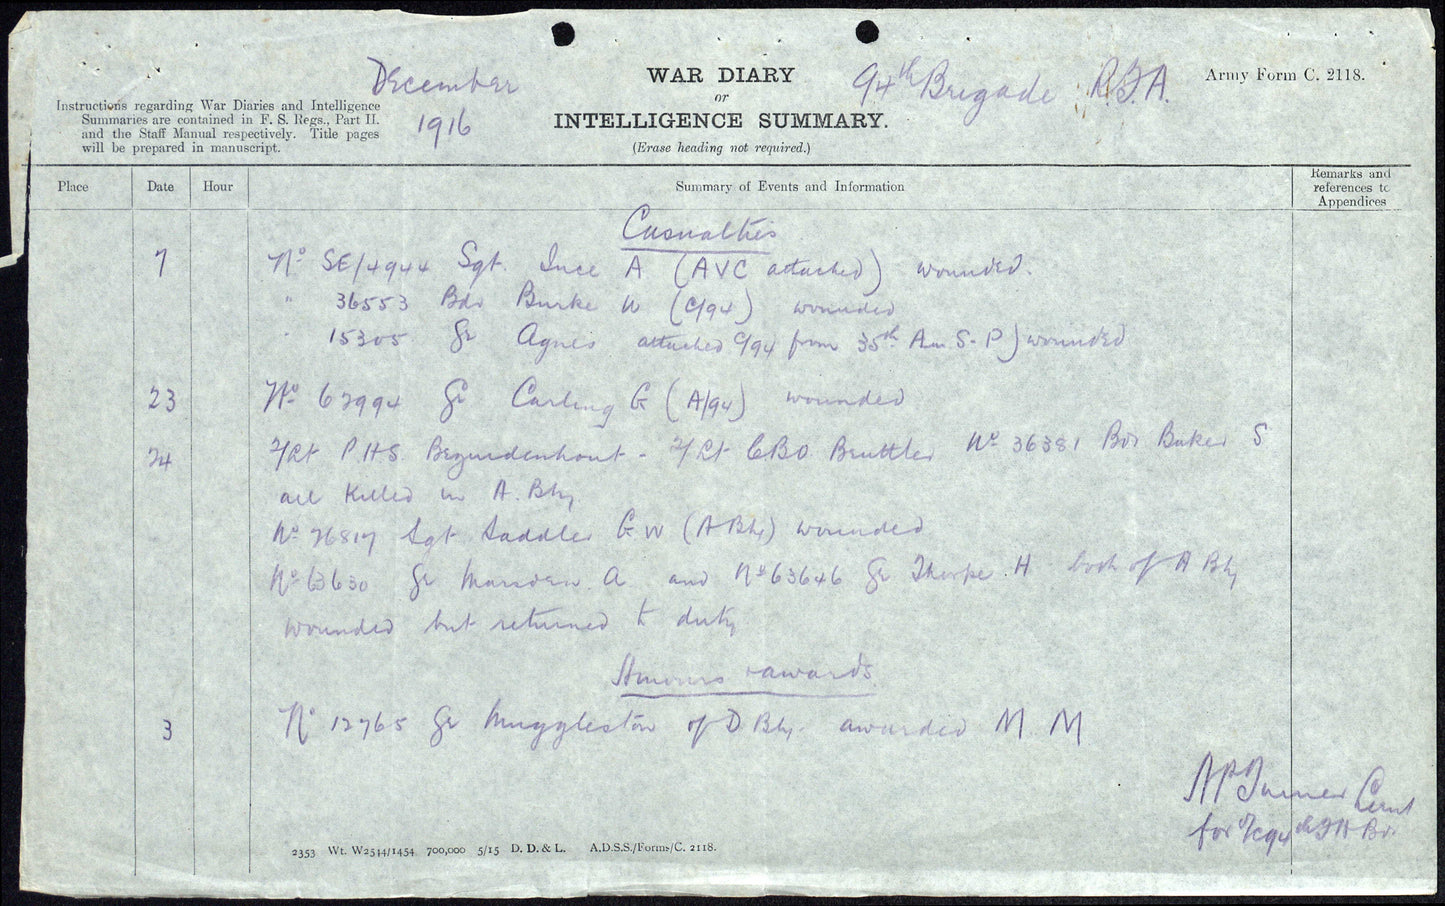 December
1916
WAR DIARY
or
INTELLIGENCE SUMMARY.
(Erase heading not required.)
94th Brigade R.F.A.
Army Form C. 2118.
Instructions regarding War Diaries and Intelligence
Summaries are contained in F. S. Regs., Part II.
and the Staff Manual respectively. Title pages
will be prepared in manuscript.
Place Date Hour Summary of Events and Information Remarks and references to Appendices
Casualties
7 No SE/4944 Sgt. Ince A (AVC attached) wounded.
" 36553 Bdr Burke W (C/94) wounded
" 15305 Gr Agnes attached C/94 from 35th Am S-P) wounded
23 No 62994 Gr Carling G (A/94) wounded
24 2/Lt P.H.S. Bezuidenhout - 2/Lt C.B.O. Beuttler No 36381 Bdr Baker S
all killed in A. Bty
No 76817 Sgt Saddler G W (A Bty) wounded
No 63630 Gr Marsden. A. and No 63646 Gr Thorpe. H both of A Bty
wounded but returned to duty
Honours + awards
3 No 12765 Gr Muggleston of D Bty. awarded M M
Turner Lieut
for O/C 94th FA Bde
2353 Wt. W2544/1454 700,000 5/15 D. D. & L. A.D.S.S./Forms/C. 2118.